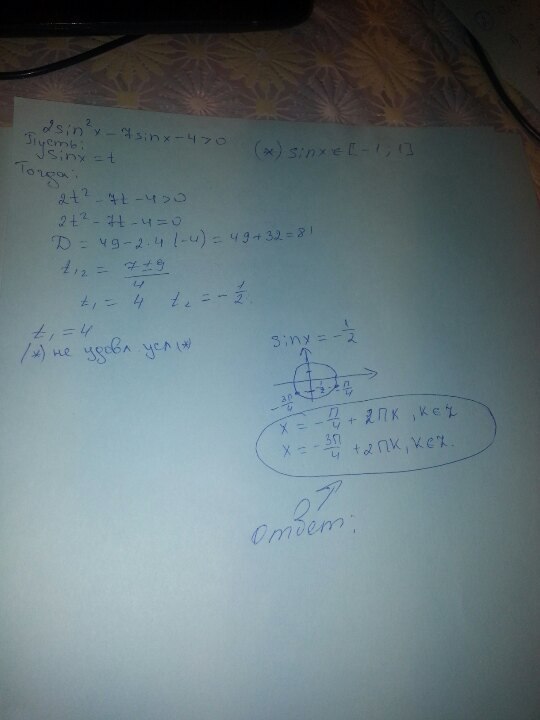 2sin²x - 7sinx - 4 > 0
Пусть:
sinx = t
(*) sinx ∈ [-1, 1]
Тогда:
2t² - 7t - 4 > 0
2t² - 7t - 4 = 0
D = 49 - 2·4(-4) = 49 + 32 = 81
t₁,₂ = (7 ± 9)/4
t₁ = 4   t₂ = -1/2.
t₁ = 4
(*) не удовл усл (*)
sinx = -1/2
-3π/4   -1/2   -π/4
x = -π/4 + 2πk, k∈Z
x = -3π/4 + 2πk, k∈Z.
Ответ: